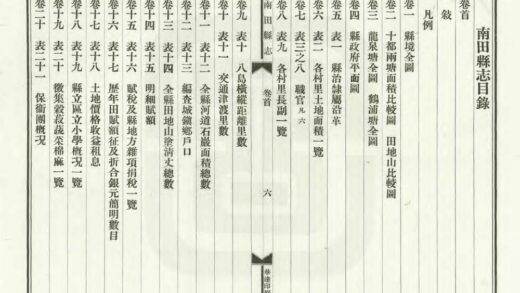 南田縣志目錄
卷首
敍
凡例
卷一 縣境全圖
卷二 十都兩塘面積比較圖 田地山比較圖
卷三 龍泉塘全圖 鶴浦塘全圖
卷四 縣政府平面圖
卷五 表一 縣治隸屬沿革
卷六 表二 各村里土地面積一覽
卷七 表三之八 職官凡六
卷八 表九 各村里長副一覽
南田縣志 卷首 六
卷九 表十 八島橫縱距離里數
卷十 表十一 交通津渡里數
卷十一 表十二 全縣河道石巖面積總數
卷十二 表十三 編查城鎮鄉戶口
卷十三 表十四 全縣田地山塗清丈總數
卷十四 表十五 明細賦額
卷十五 表十六 賦稅及縣地方雜項捐稅一覽
卷十六 表十七 歷年田賦額征及折合銀元簡明數目
卷十七 表十八 土地價格收益租息
卷十八 表十九 縣立區立小學概況一覽
卷十九 表二十 徵集穀菽蔬菜棉麻一覽
卷二十 表二十一 保衞團概況